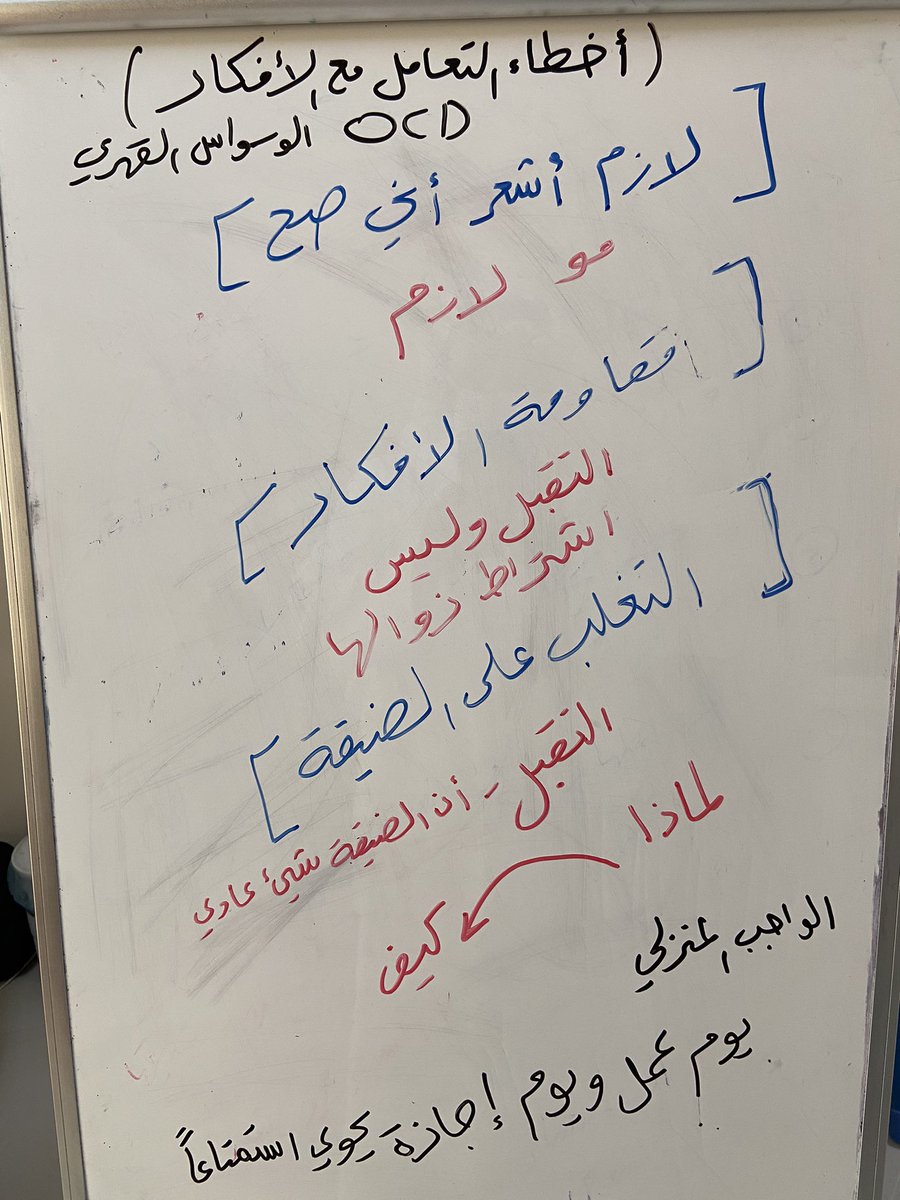 ( أخطاء التعامل مع الأفكار )
OCD الوسواس القهري
[ لازم أشعر أني صح ]
مو لازم
[ مقاومة الأفكار ]
التقبل وليس
اشتراط زوالها
[ التغلب على الضيقة ]
التقبل - أن الضيقة شيئ عادي
لماذا
كيف
الواجب المنزلي
يوم عمل ويوم إجازة يحوي استمتاعاً